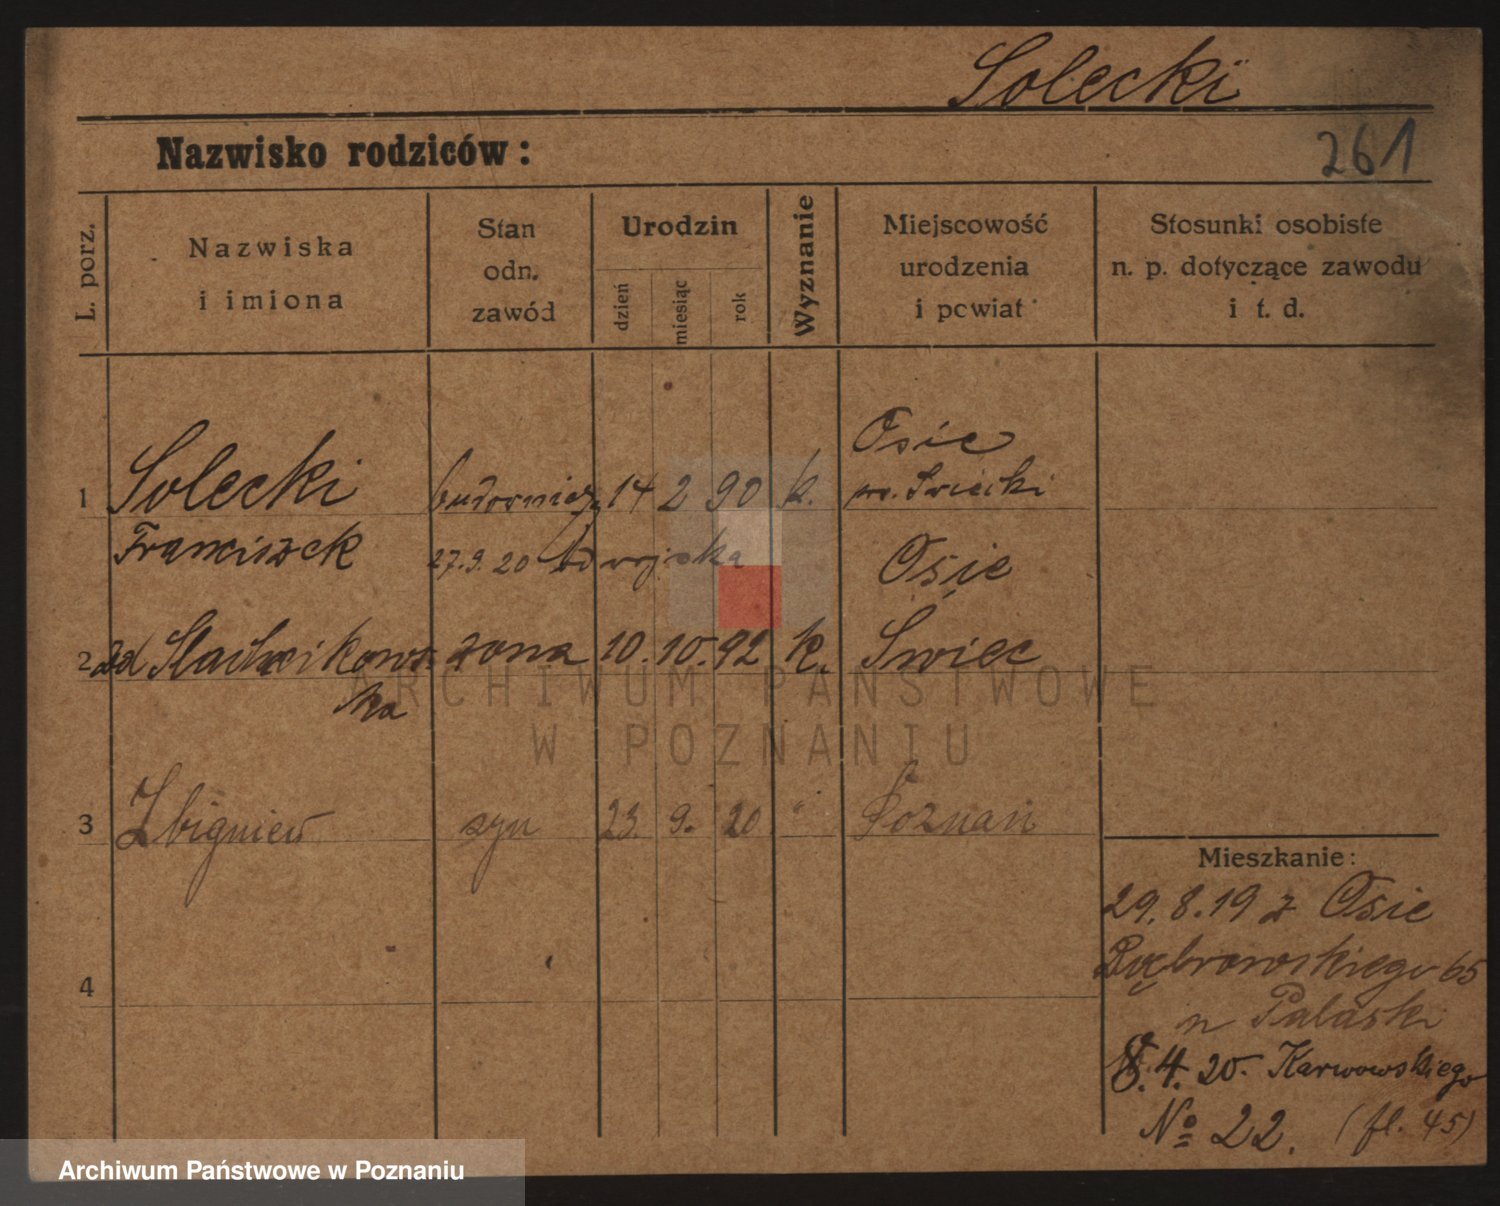 Solecki
Nazwisko rodziców:
261
L. porz.
Nazwiska
i imiona
Stan
odn.
zawód
Urodzin
dzień
miesiąc
rok
Wyznanie
Miejscowość
urodzenia
i powiat
Stosunki osobiste
n. p. dotyczące zawodu
i t. d.
1 Solecki budowniczy 14 2 90 k. Osie
pw. Swiecki
Franciszek 27.9.20 do wojska Osie
2 żona 10. 10. 92 k. Swiec
ka
3 Zbigniew syn 23. 9. 20 " Poznań
4
Mieszkanie:
29.8.19 z Osie
Dąbrowskiego 65
8.4.20. Karwowskiego
No 22. (fl. 45)
ARCHIWUM PAŃSTWOWE
W POZNANIU
Archiwum Państwowe w Poznaniu